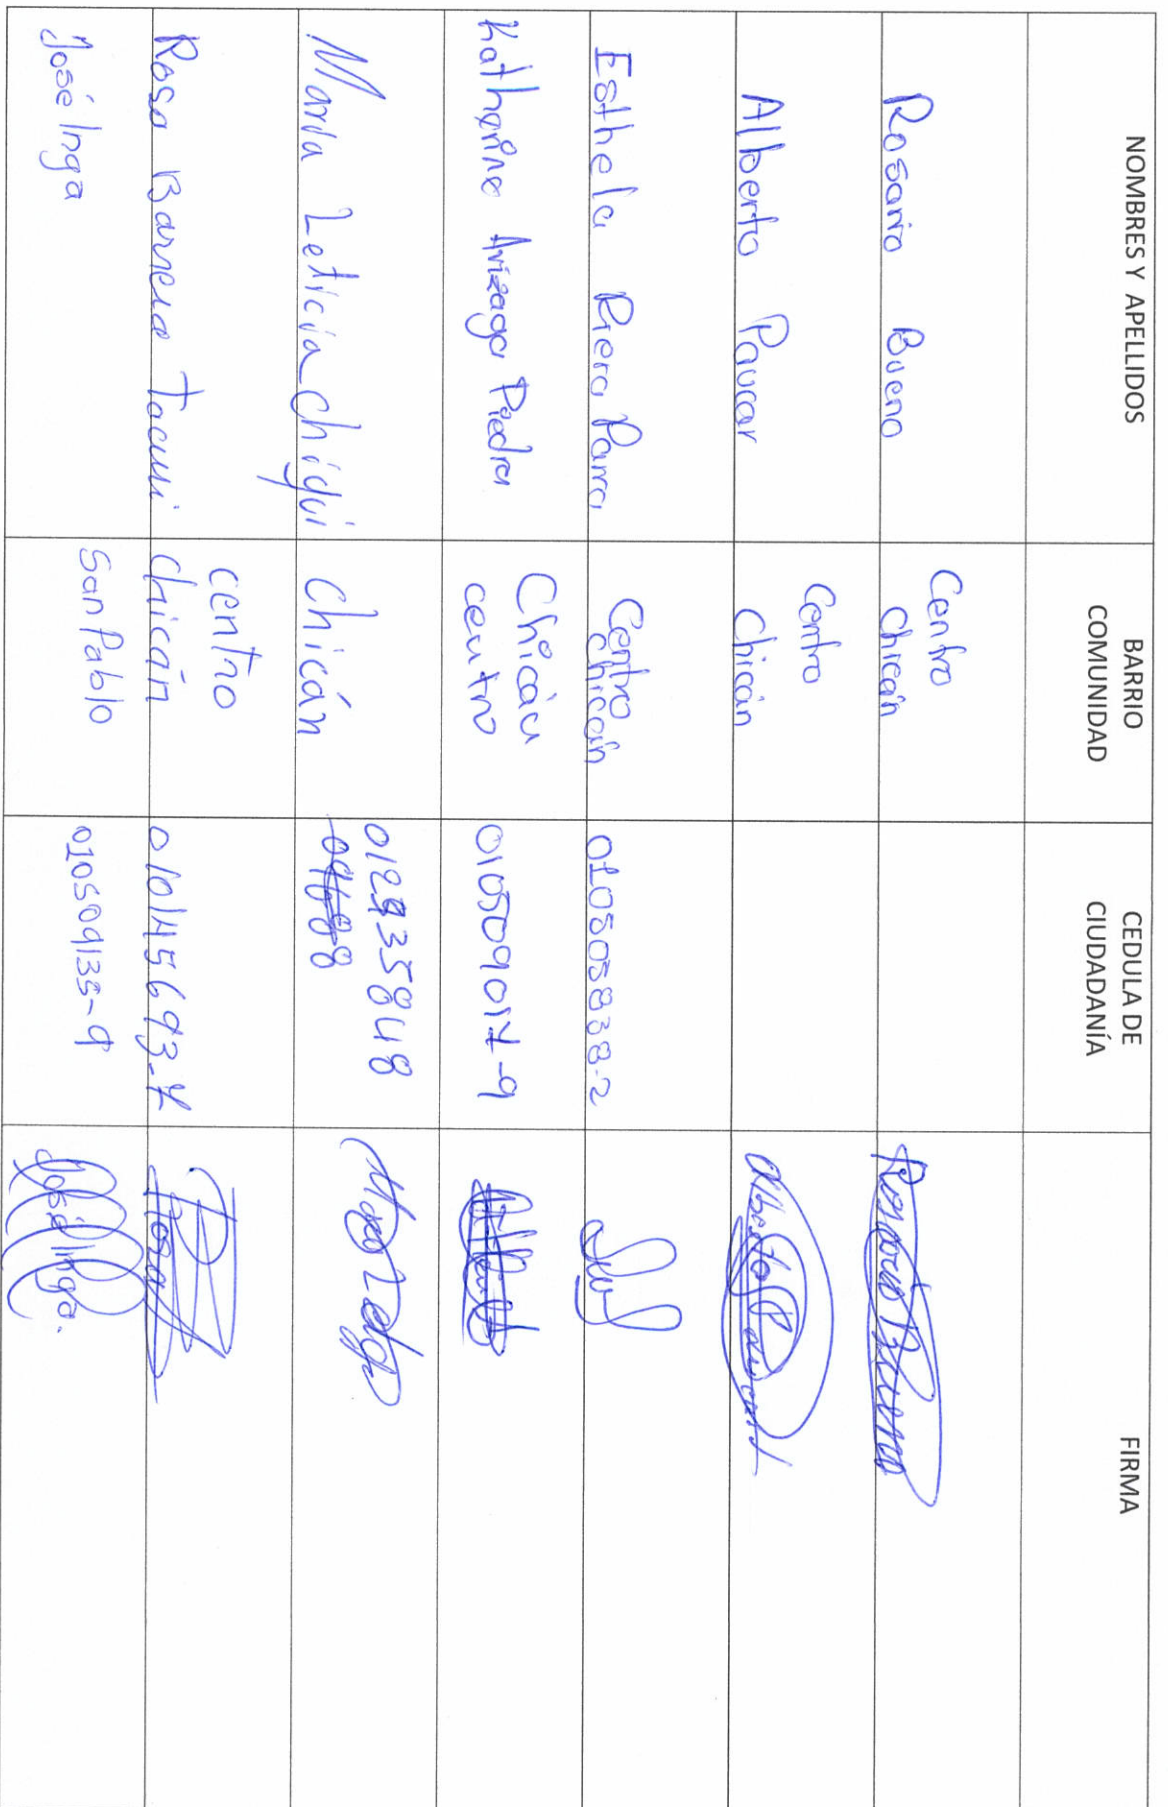 NOMBRES Y APELLIDOS
BARRIO
COMUNIDAD
CEDULA DE
CIUDADANÍA
FIRMA
Rosario Bueno
Centro
Chicán
Rosario Bueno
Alberto Paucar
Centro
Chicán
Alberto Paucar
Esthela Riera Parra
Centro
Chicán
010505838-2
Katherine Arizaga Piedra
Chicán
centro
010509017-9
Maria Leticia Chiqui
Chicán
Rosa Barrera Tacuri
centro
chicán
010145693-4
Rosa
José Inga
San Pablo
010509135-9
José Inga.